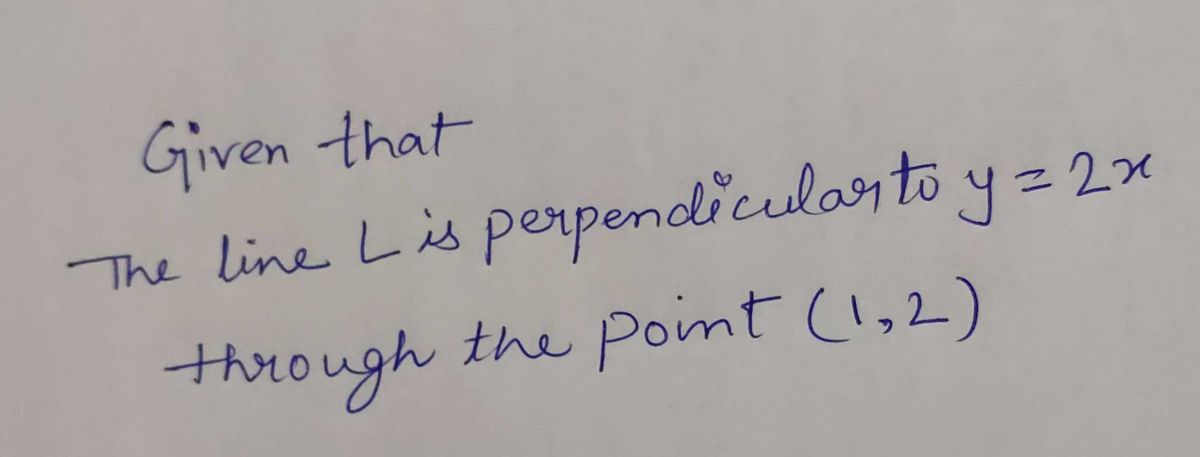 Given that
The line L is perpendicular to y = 2x
through the point (1,2)